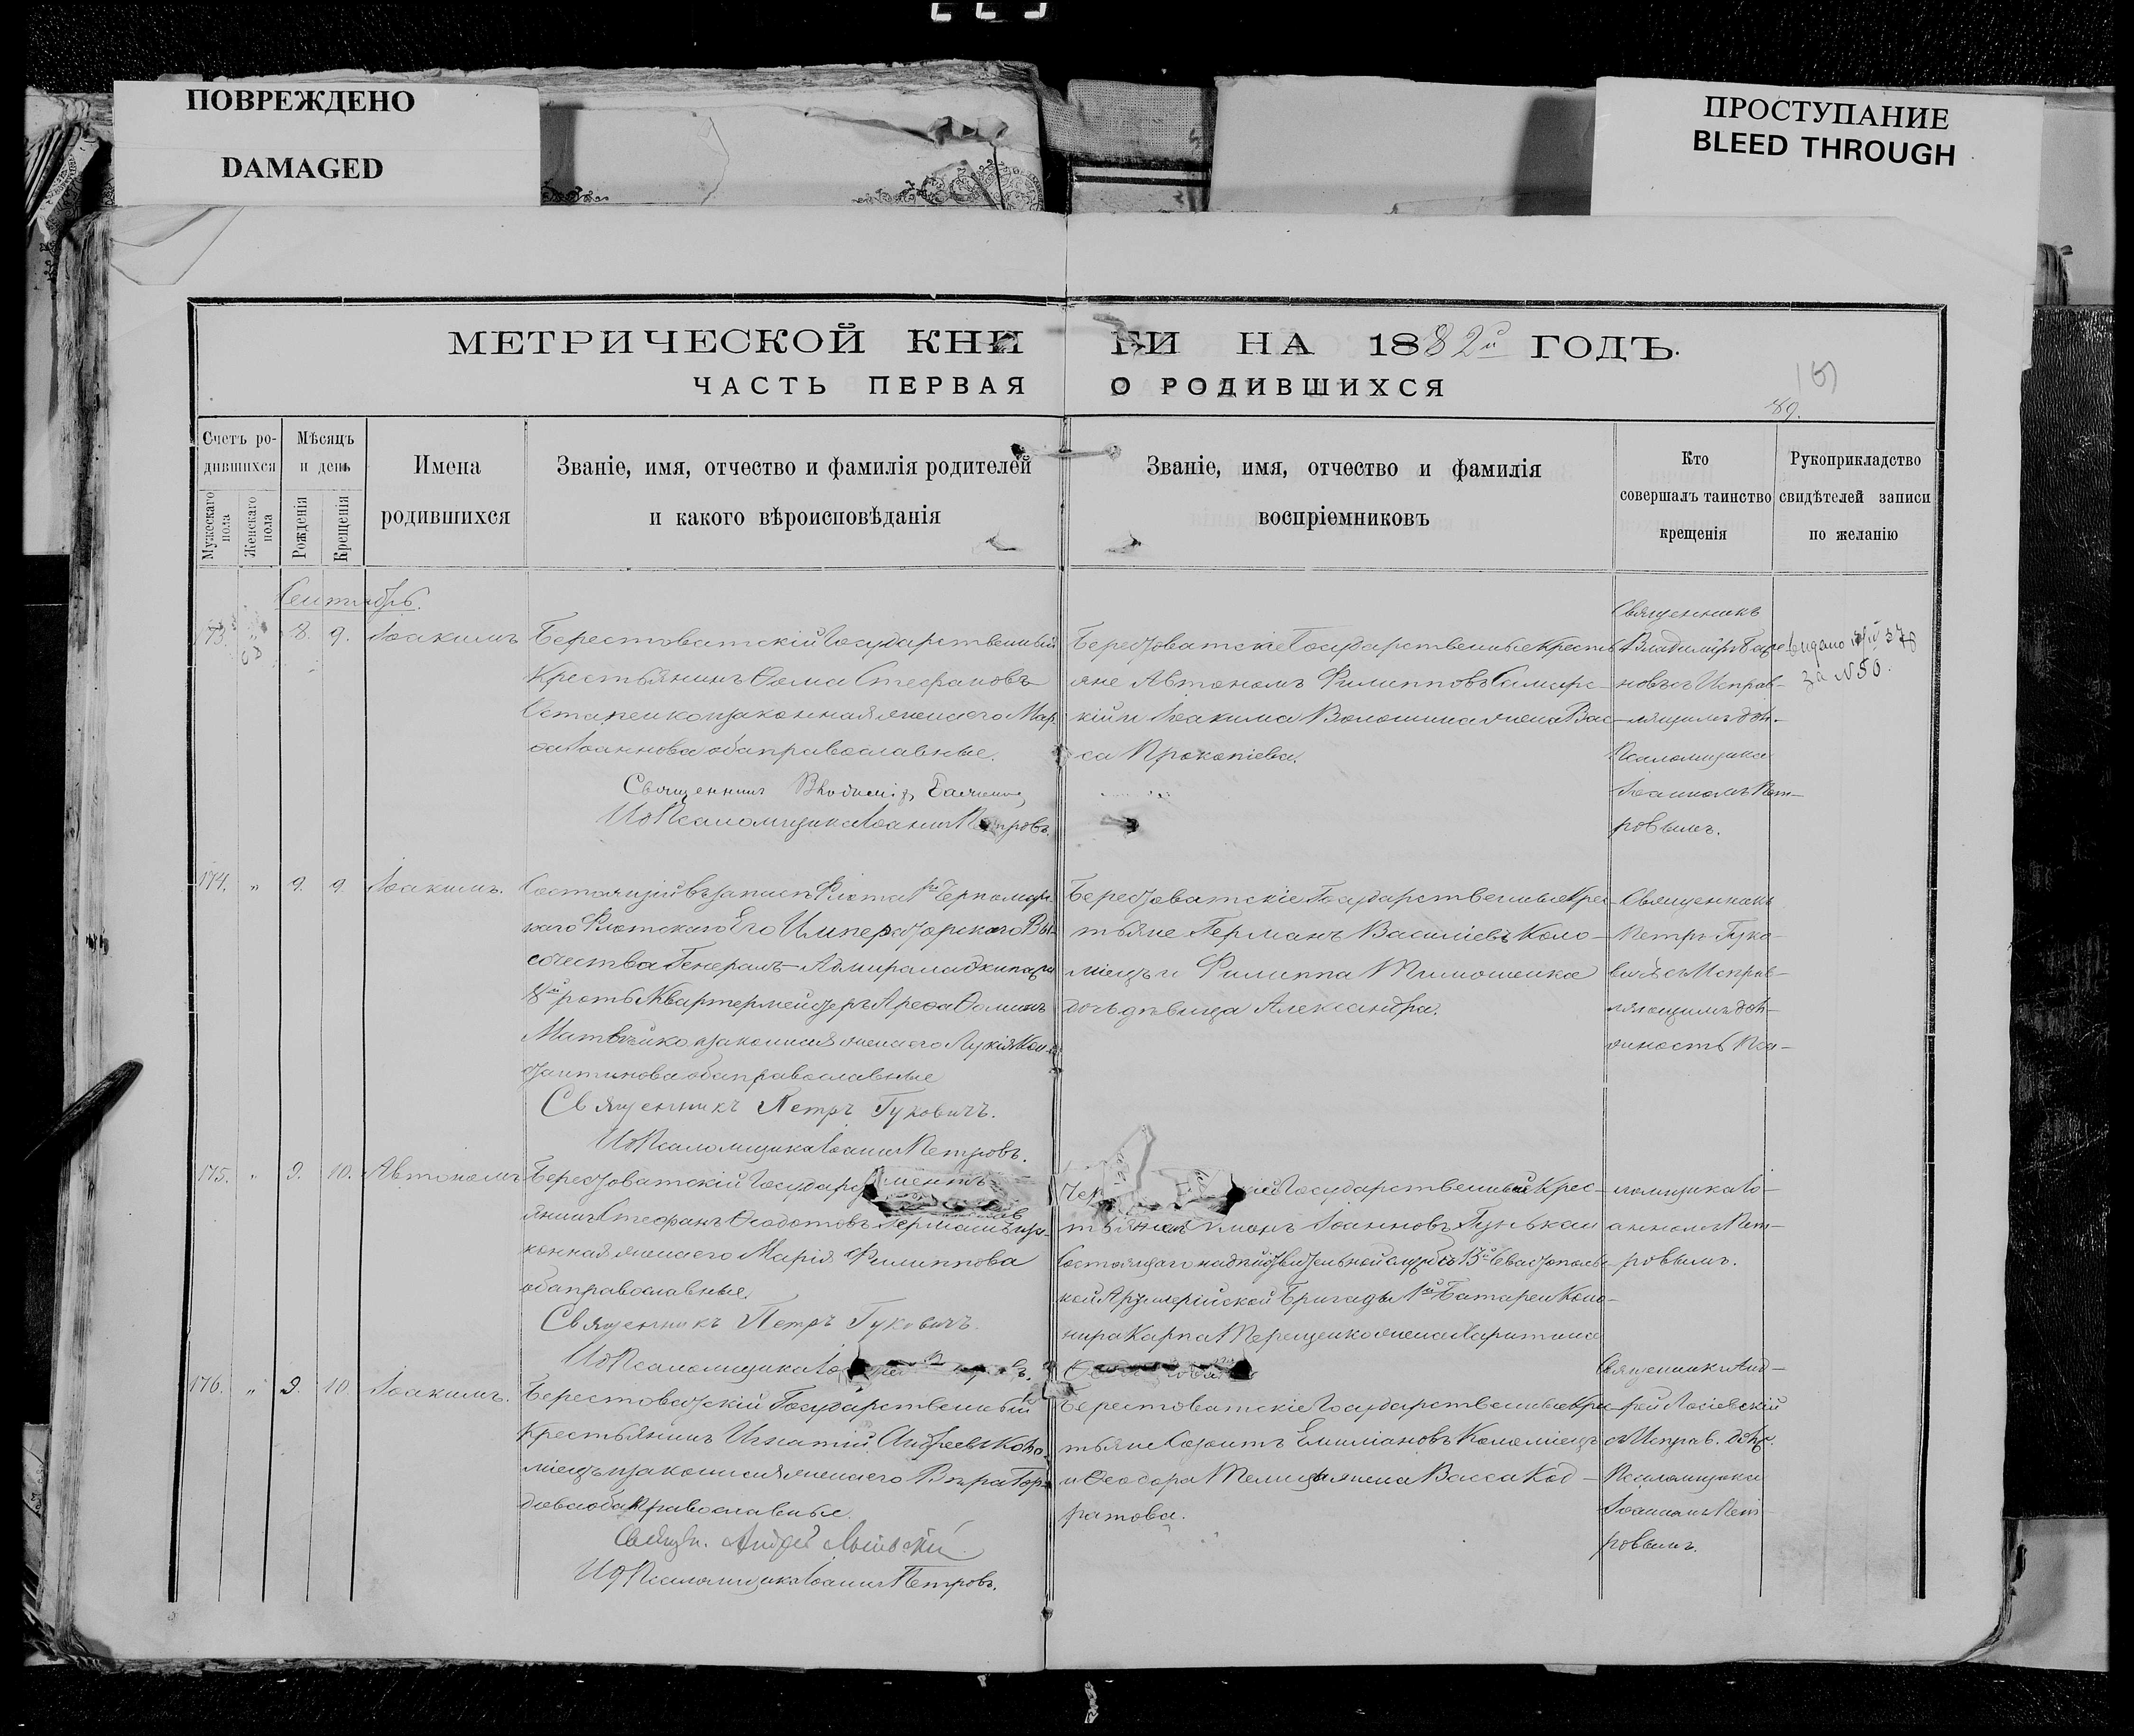 ПОВРЕЖДЕНО
DAMAGED
ПРОСТУПАНИЕ
BLEED THROUGH
МЕТРИЧЕСКОЙ КНИ ГИ НА 1882й ГОДЪ.
ЧАСТЬ ПЕРВАЯ О РОДИВШИХСЯ
89.
Счетъ ро-
дившихся
Мужескаго пола
Женскаго пола
Мѣсяцъ
и день
Рожденія
Крещенія
Имена
родившихся
Званіе, имя, отчество и фамилія родителей
и какого вѣроисповѣданія
Званіе, имя, отчество и фамилія
воспріемниковъ
Кто
совершалъ таинство
крещенія
Рукоприкладство
свидѣтелей записи
по желанію
Сентябрь.
173. " 8. 9. Іоакимъ
Берестоватскій Государственный
Крестьянинъ Ѳома Стефановъ
законная жена его Мар-
ѳа Іоаннова оба православные.
Священникъ
И д Псаломщика Іоаннъ Петровъ.
Берестоватскіе Государственные Кресть
яне Автономъ Филипповъ Самарс-
кій и Іоакима Волошина жена Вас-
са Прокопіева.
Священникъ
Владиміръ
новъ съ Исправ-
ляющимъ дол.
Псаломщика
Іоанномъ Пет-
ровымъ.
за №50.
174. " 9. 9. Іоакимъ.
Состоящій въ запасѣ Флота Черномор
скаго Флотскаго Его Императорскаго Вы-
сочества Генералъ-Адмирала экипажа
8й роты Квартермейстеръ Ареѳа Ѳоминъ
Матвѣйко и законная жена его Лукія Кон-
стантинова оба православные
Священникъ Петръ Гуковичъ.
И д Псаломщика Іоаннъ Петровъ.
Берестоватскіе Государственные Крес-
тьяне Германъ Василіевъ Коло-
міецъ и Филиппа Тимошенка
дочь дѣвица Александра.
Священникъ
Петръ Гуко-
вичъ съ Исправ-
ляющимъ дол-
жность Пса-
175. " 9. 10. Автономъ
Берестоватскій Государс
янинъ Стефанъ Ѳеодотовъ
конная жена его Марія Филиппова
оба православные.
Священникъ Петръ Гуковичъ.
И д Псаломщика
Государственный Крес-
Іоанновъ Гунька и
Состоящаго на дѣйствительной службѣ 13й Севастопольс-
кой Артилерійской Бригады 1й Батареи Кано-
нира Карпа Терещенко жена Харитина
ломщика Іо-
анномъ Пет-
ровымъ.
176. " 9. 10. Іоакимъ.
Берестоватскій Государственный
Крестьянинъ Игнатій Андреевъ Коло-
міецъ и законная жена его Вѣра Гор-
діева оба Православные.
Священ. Андрей Лосіевскій
И д Псаломщика Іоаннъ Петровъ.
Берестоватскіе Государственные Крес-
тьяне Созонтъ Емиліановъ Коломіецъ
и Ѳеодора Телицы жена Васса Код-
ратова.
Священникъ Анд-
рей Лосіевскій
съ Исправ. долж.
Псаломщика
Іоанномъ Пет-
ровымъ.